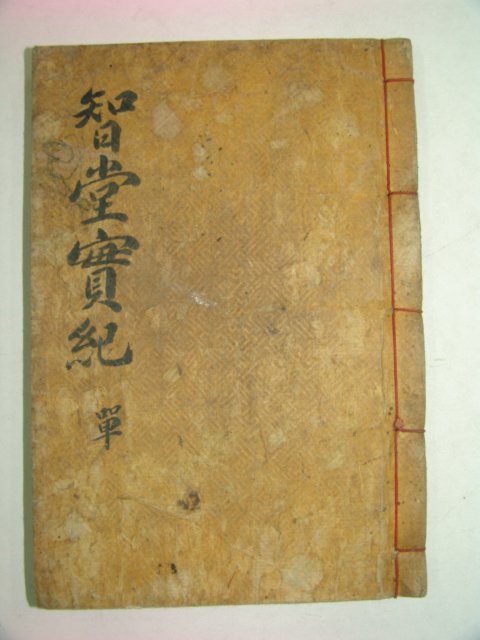 智堂實紀
單